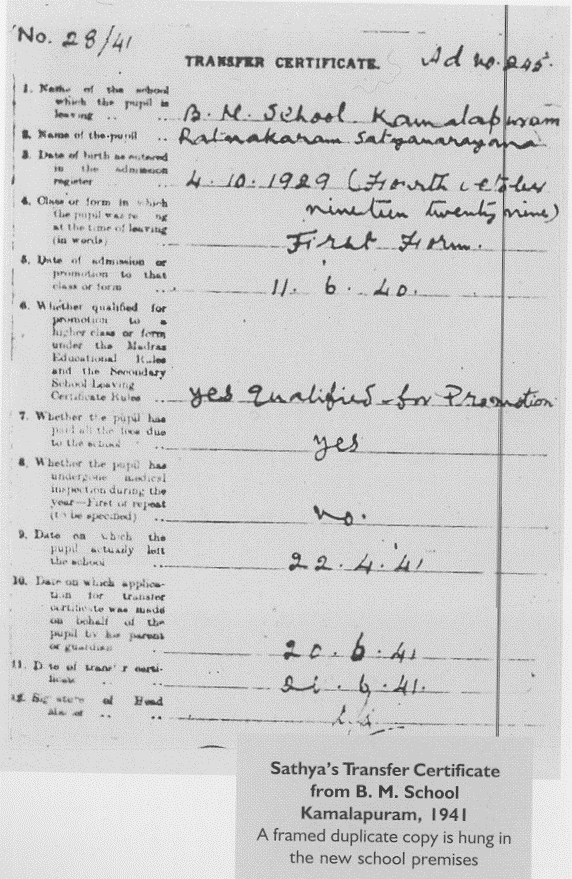 No. 28/41
TRANSFER CERTIFICATE.
Ad no. 245.
1. Name of the school
which the pupil is
leaving .. ..
B. M. School Kamalapuram
2. Name of the pupil ..
Ratnakaram Satyanarayana
3. Date of birth as entered
in the admission
register ..
4.10.1929 (Fourth october
nineteen twenty nine)
4. Class or form in which
the pupil was
at the time of leaving
(in words) ..
First Form.
5. Date of admission or
promotion to that
class or form ..
11. 6. 40.
6. Whether qualified for
promotion to a
higher class or form
under the Madras
Educational Rules
and the Secondary
School Leaving
Certificate Rules
yes qualified for Promotion
7. Whether the pupil has
paid all the fees due
to the school ..
yes
8. Whether the pupil has
undergone medical
inspection during the
year—First or repeat
(to be specified) ..
no.
9. Date on which the
pupil actually left
the school ..
22.4.41
10. Date on which applica-
tion for transfer
certificate was made
on behalf of the
pupil by his parent
or guardian ..
20.6.41
11. Date of transfer certi-
ficate .. ..
6.41.
12. Signature of Head
.. ..
Sathya's Transfer Certificate
from B. M. School
Kamalapuram, 1941
A framed duplicate copy is hung in
the new school premises